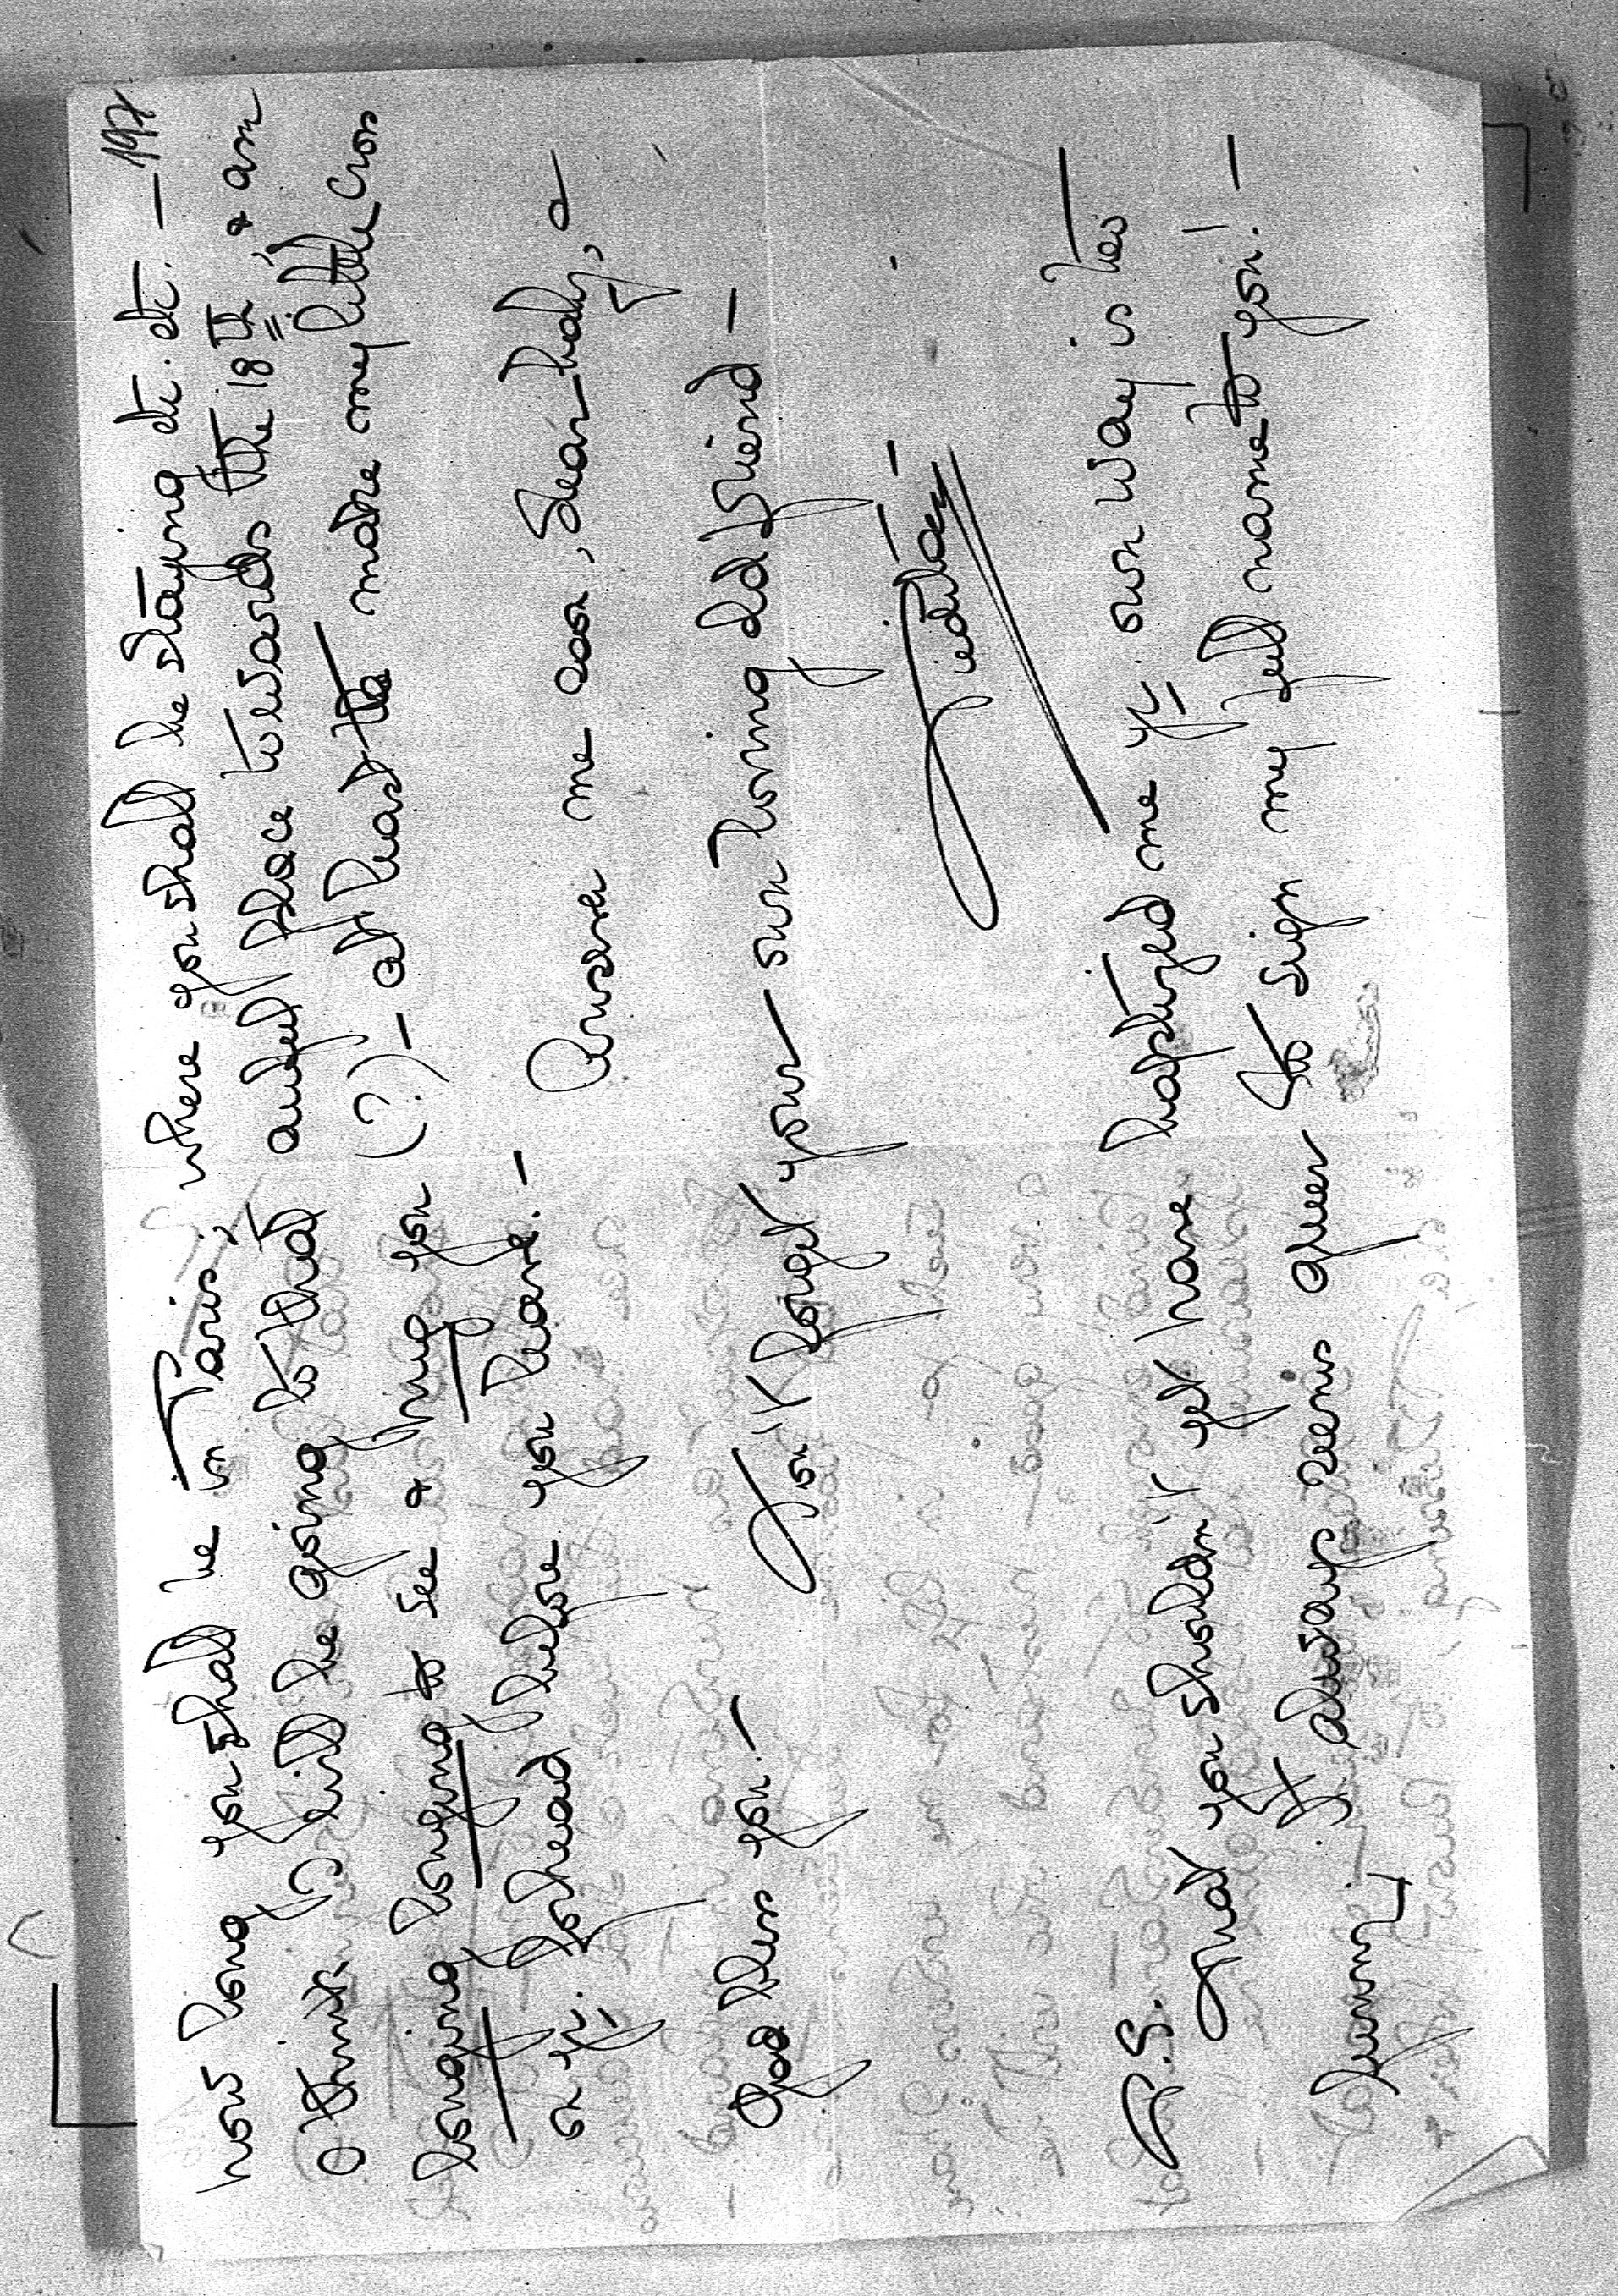 197
how long you shall be in Paris, where you shall be staying etc. etc. —
O think (?) will be going to that awful place towards the 18th, & am
longing longing to see & hug you (?) — at least to make my little Cross
on yr. forehead before you leave. — Answer me soon, Dear Lady,
God bless you. — Don't forget your — own loving old friend —
P.S. That you shouldn't yet have baptized me yr. own way is too
funny! It always seems queer to sign my full name to you! —